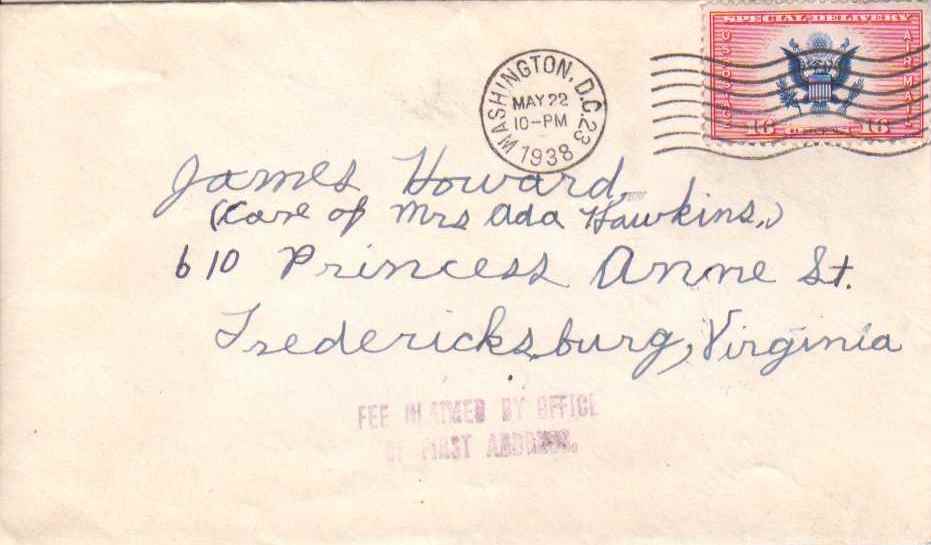 SPECIAL DELIVERY
US POSTAGE
AIR MAIL
16 16
WASHINGTON, D.C. 23
MAY 22
10-PM
1938
James Howard,
(Care of Mrs Ada Hawkins,)
610 Princess Anne St.
Fredericksburg, Virginia
FEE CLAIMED BY OFFICE
OF FIRST ADDRESS.